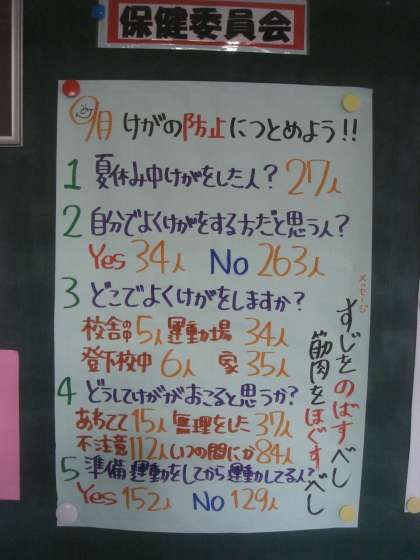 保健委員会
9月 けがの防止につとめよう!!
1 夏休み中けがをした人? 27人
2 自分でよくけがをする方だと思う人?
Yes 34人 No 263人
3 どこでよくけがをしますか?
校舎の中 5人 運動場 34人
登下校中 6人 家 35人
4 どうしてけががおこると思うか?
あわてて 15人 無理をした 37人
不注意 112人 いつの間にか 84人
5 準備運動をしてから運動してる人?
Yes 152人 No 129人
メッセージ
すじをのばすべし
筋肉をほぐすべし